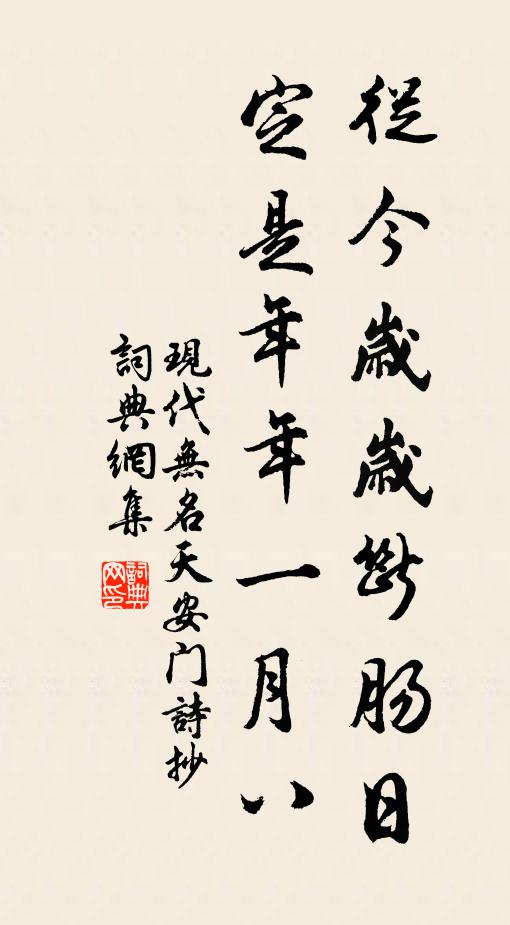 從今歲歲斷腸日
定是年年一月八
現代無名天安门詩抄
詞典網集
詞典网印